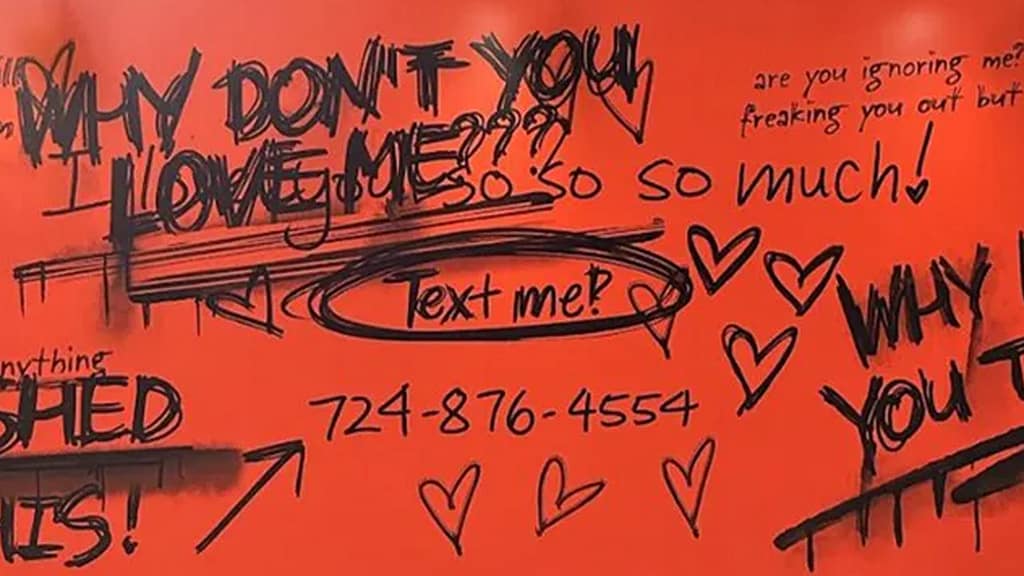 WHY DON'T YOU
LOVE ME???
I love you so so so much!
are you ignoring me?
freaking you out but
Text me?
WHY
YOU
nything
SHED
724-876-4554
HIS!